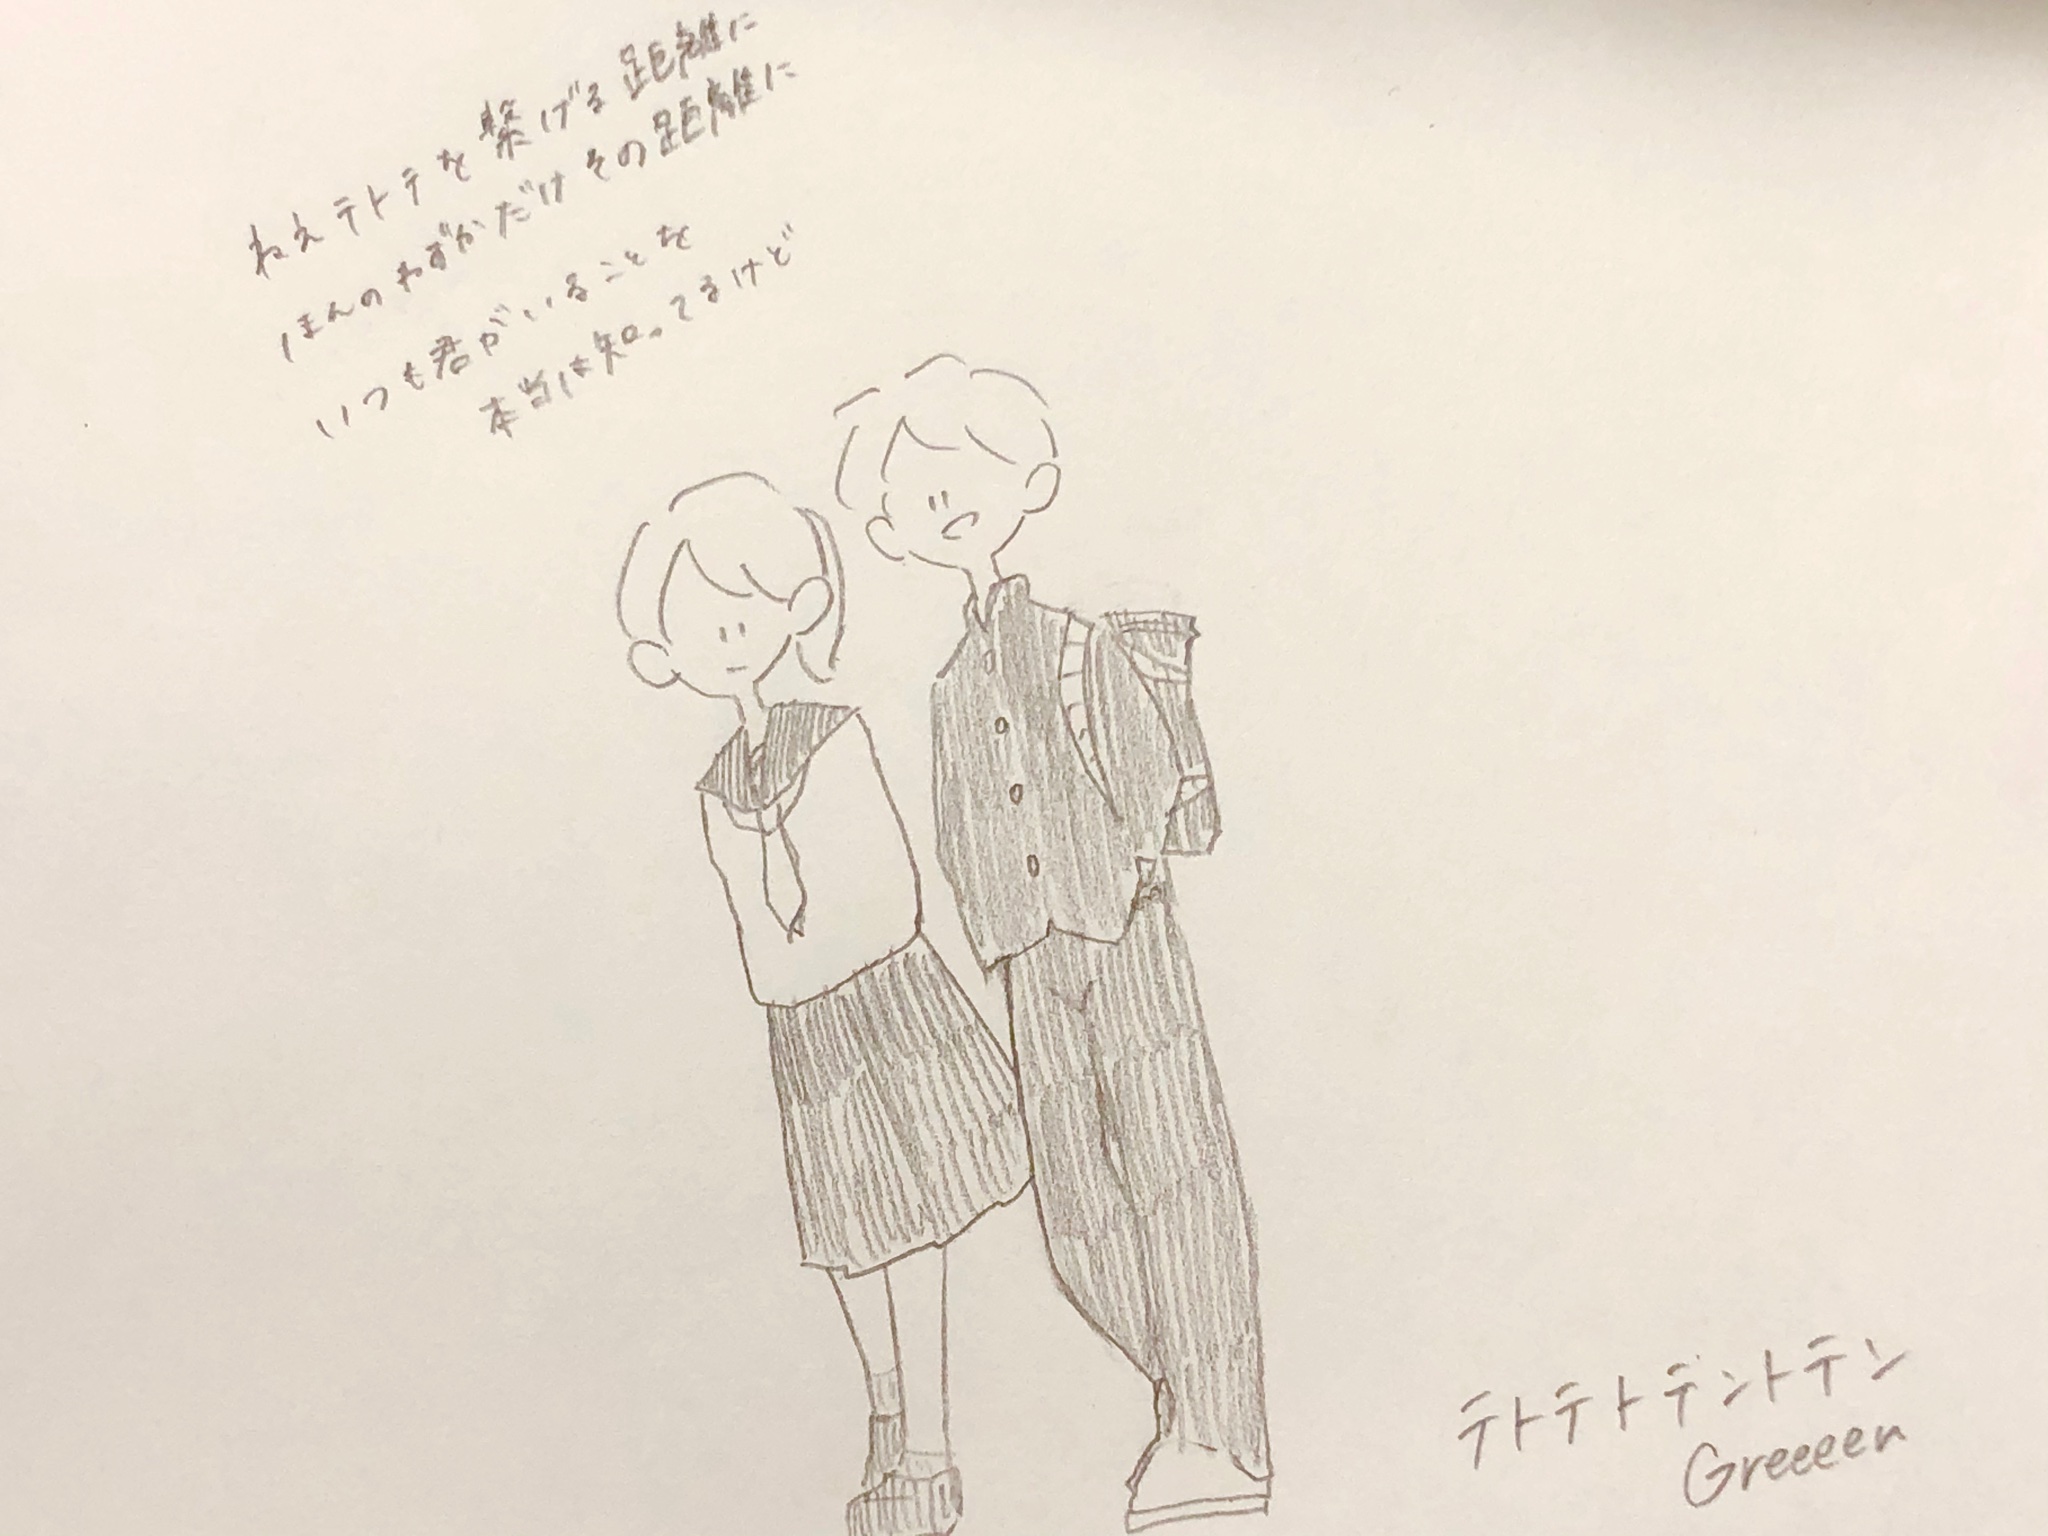 ねえテトテを繋げる距離に
ほんのわずかだけその距離に
いつも君がいることを
本当は知ってるけど
テトテトテントテン
Greeeen